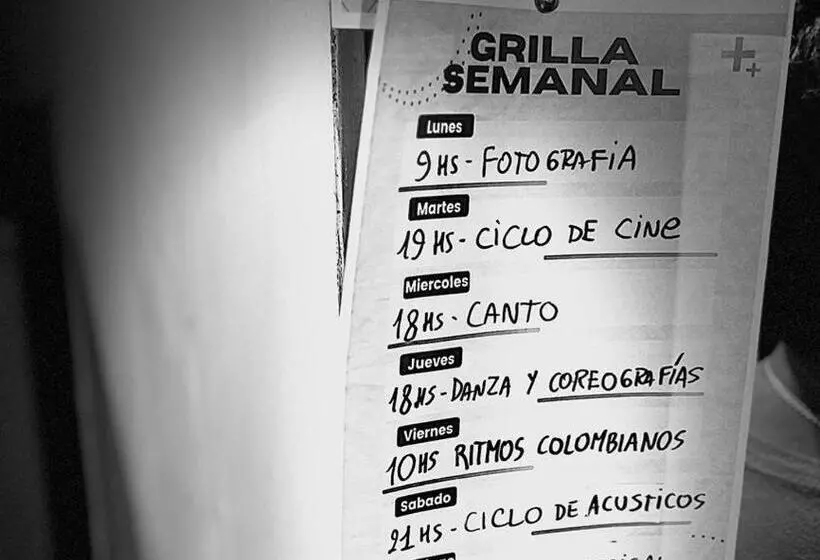 GRILLA
SEMANAL
Lunes
9HS - FOTOGRAFIA
Martes
19 HS - CICLO DE CINE
Miercoles
18HS - CANTO
Jueves
18HS - DANZA Y COREOGRAFÍAS
Viernes
10HS RITMOS COLOMBIANOS
Sabado
21HS - CICLO DE ACUSTICOS